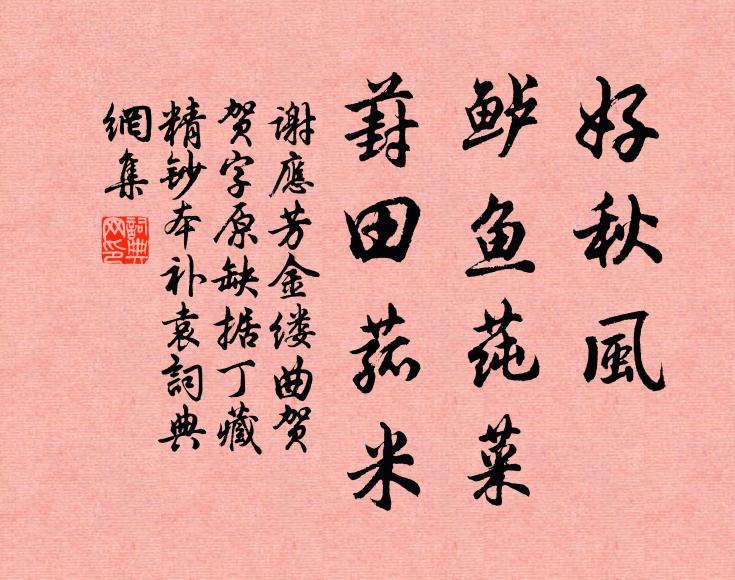 好秋風
鲈鱼莼菜
葑田菰米
谢應芳金缕曲贺
贺字原缺据丁藏
精鈔本补袁詞典
網集
詞典網印